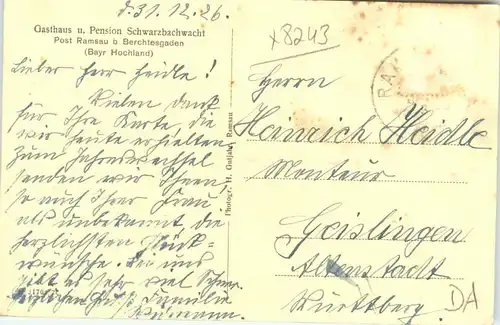 d. 31. 12. 26.
Gasthaus u. Pension Schwarzbachwacht
Post Ramsau b Berchtesgaden
(Bayr Hochland)
Lieber Herr Heidle!
Vielen Dank
für Ihre Karte, die
wir heute erhielten
zum Jahreswechsel
senden wir Ihnen,
so auch Ihrer Frau
als unbekannt, die
herzlichsten Glück-
wünsche. Bei uns
gibt es sehr viel
Familie
Photogr. H. Gutjahr, Ramsau
x8243
RA
Herrn
Heinrich Heidle
Monteur
Geislingen
Altenstadt
Württberg.
DA